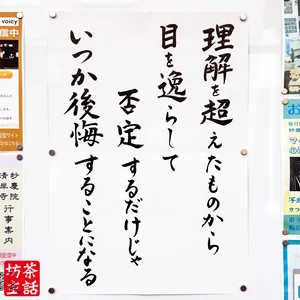 理解を超えたものから
目を逸らして
否定するだけじゃ
いつか後悔することになる
voicy
信中
妙慶院
清岸寺
行事案内
茶話
坊主